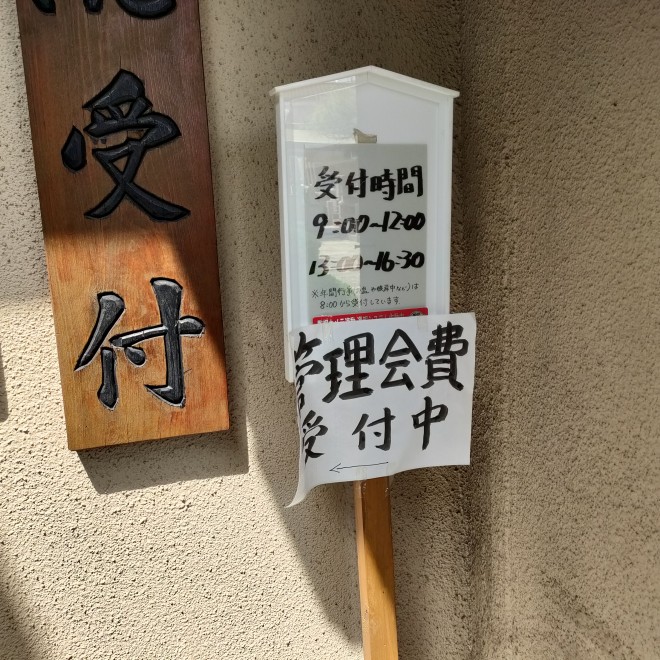 受付
受付時間
9:00~12:00
13:00~16:30
8:00から受付しています
管理会費
受付中